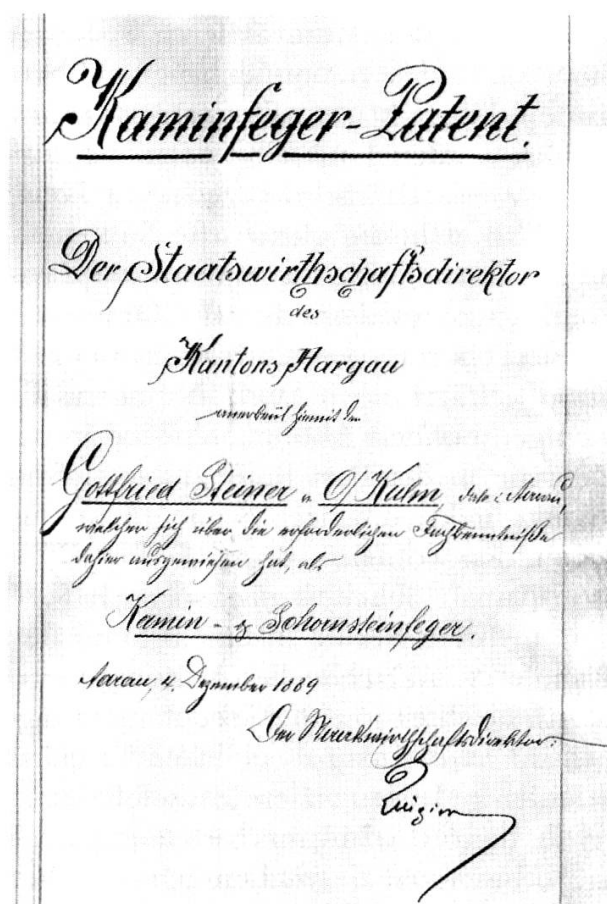 Kaminfeger-Patent.
Der Staatswirthschaftsdirektor
des
Kantons Aargau
anerkennt hiemit den
Gottfried Steiner v. O/Kulm,
welcher sich über die erforderlichen Fachkenntniße
dahier ausgewiesen hat, als
Kamin- & Schornsteinfeger.
Aarau, 4. Dezember 1889
Der Staatswirthschaftsdirektor: